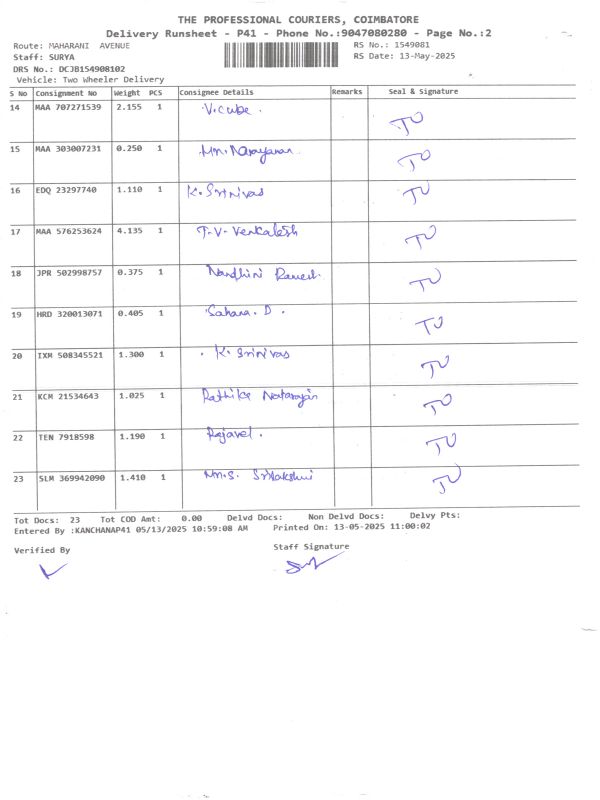 THE PROFESSIONAL COURIERS, COIMBATORE
Delivery Runsheet - P41 - Phone No.:9047080280 - Page No.:2
Route: MAHARANI AVENUE RS No.: 1549081
Staff: SURYA RS Date: 13-May-2025
DRS No.: DCJB154908102
Vehicle: Two Wheeler Delivery
S No Consignment No Weight PCS Consignee Details Remarks Seal & Signature
14 MAA 707271539 2.155 1 V.cube. TU
15 MAA 303007231 0.250 1 Narayanan TU
16 EDQ 23297740 1.110 1 K. Srinivas TU
17 MAA 576253624 4.135 1 T.V. Venkatesh TU
18 JPR 502998757 0.375 1 Nandhini Ramesh. TU
19 HRD 320013071 0.405 1 Sahana. D. TU
20 IXM 508345521 1.300 1 . K. Srinivas TU
21 KCM 21534643 1.025 1 Natarajan TU
22 TEN 7918598 1.190 1 Rajavel. TU
23 SLM 369942090 1.410 1 TU
Tot Docs: 23 Tot COD Amt: 0.00 Delvd Docs: Non Delvd Docs: Delvy Pts:
Entered By :KANCHANAP41 05/13/2025 10:59:08 AM Printed On: 13-05-2025 11:00:02
Verified By Staff Signature